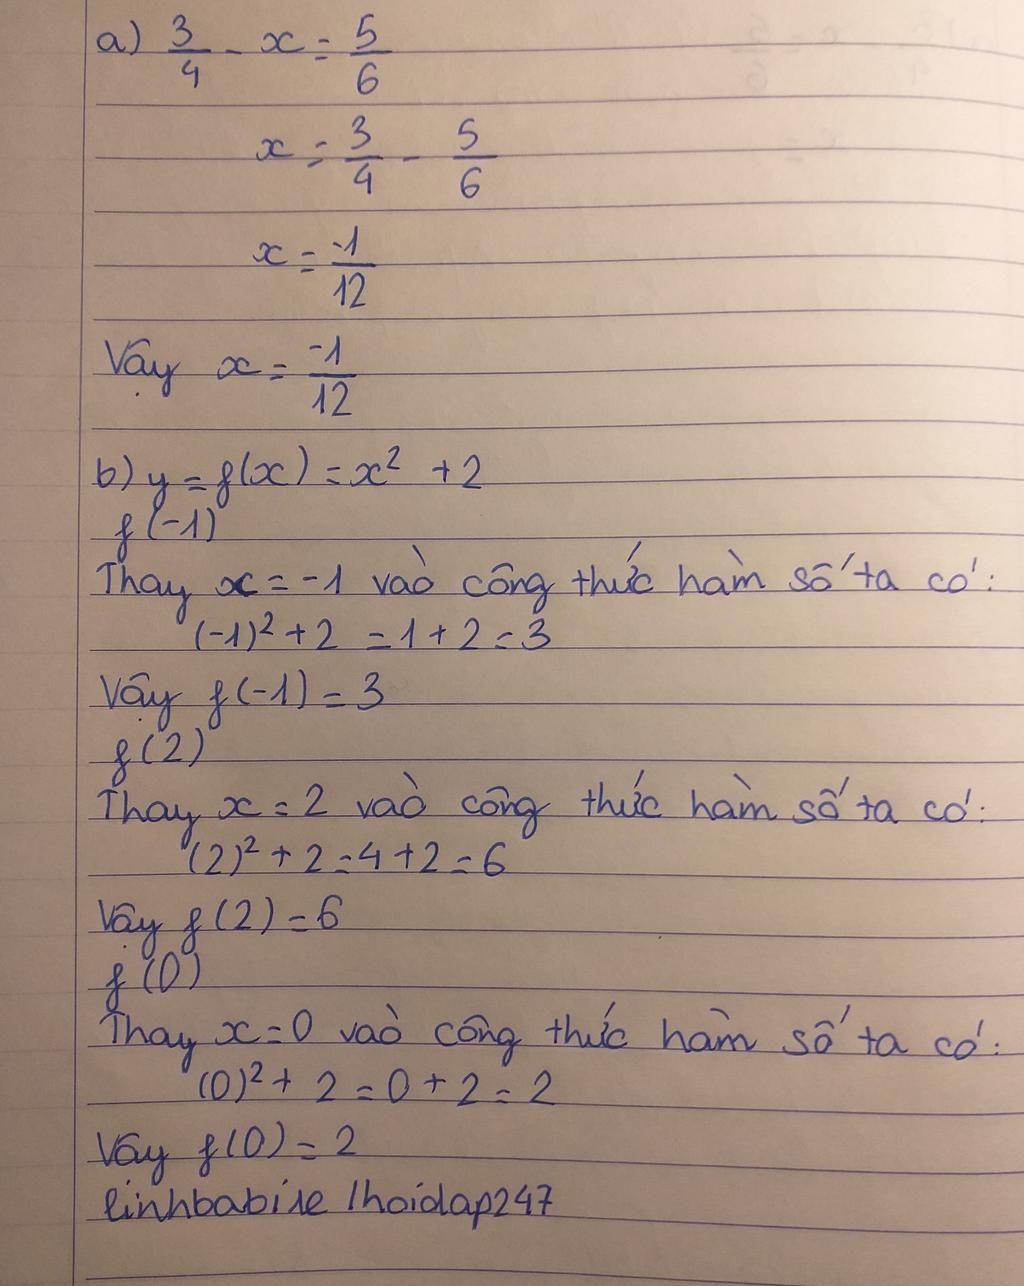 a) 3/4 - x = 5/6
x = 3/4 - 5/6
x = -1/12
Vậy x = -1/12
b) y = f(x) = x² + 2
f(-1)
Thay x = -1 vào công thức hàm số ta có:
(-1)² + 2 = 1 + 2 = 3
Vậy f(-1) = 3
f(2)
Thay x = 2 vào công thức hàm số ta có:
(2)² + 2 = 4 + 2 = 6
Vậy f(2) = 6
f(0)
Thay x = 0 vào công thức hàm số ta có:
(0)² + 2 = 0 + 2 = 2
Vậy f(0) = 2